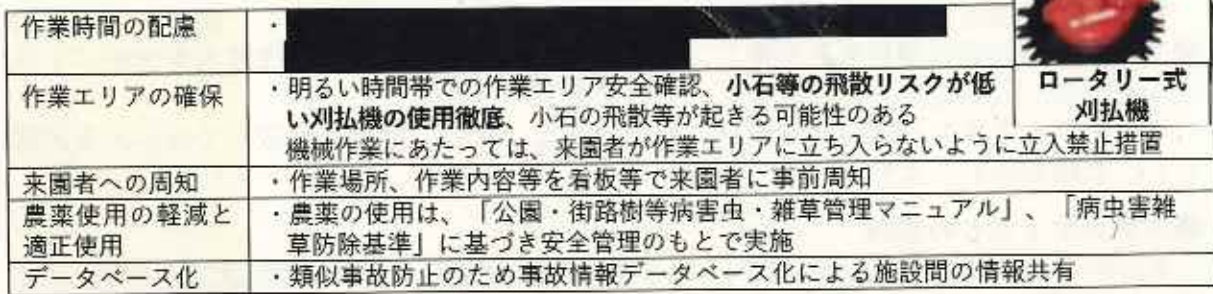 作業時間の配慮
・
作業エリアの確保
・明るい時間帯での作業エリア安全確認、小石等の飛散リスクが低
い刈払機の使用徹底、小石の飛散等が起きる可能性のある
機械作業にあたっては、来園者が作業エリアに立ち入らないように立入禁止措置
ロータリー式
刈払機
来園者への周知
・作業場所、作業内容等を看板等で来園者に事前周知
農薬使用の軽減と
適正使用
・農薬の使用は、「公園・街路樹等病害虫・雑草管理マニュアル」、「病虫害雑
草防除基準」に基づき安全管理のもとで実施
データベース化
・類似事故防止のため事故情報データベース化による施設間の情報共有